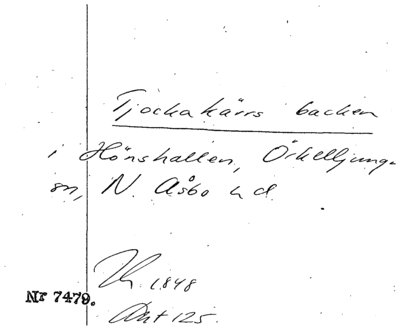 Tjockakärrs backen
i Hönshallen, Örkelljung-
sn, N. Åsbo hd.
1848
Nr 7479.
Ant 125.